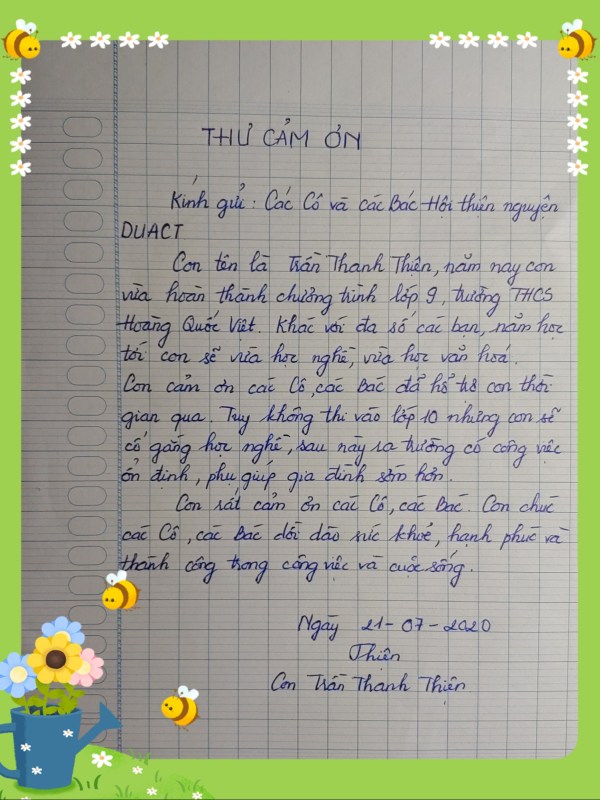 THƯ CẢM ƠN
Kính gửi: Các Cô và các Bác Hội thiện nguyện
DUACT
Con tên là Trần Thanh Thiện, năm nay con
vừa hoàn thành chương trình lớp 9, trường THCS
Hoàng Quốc Việt. Khác với đa số các bạn, năm học
tới con sẽ vừa học nghề, vừa học văn hoá.
Con cảm ơn các Cô, các Bác đã hỗ trợ con thời
gian qua. Tuy không thi vào lớp 10 nhưng con sẽ
cố gắng học nghề, sau này ra trường có công việc
ổn định, phụ giúp gia đình sớm hơn.
Con rất cảm ơn các Cô, các Bác. Con chúc
các Cô, các Bác dồi dào sức khoẻ, hạnh phúc và
thành công trong công việc và cuộc sống.
Ngày 21-07-2020
Thiện
Con Trần Thanh Thiện